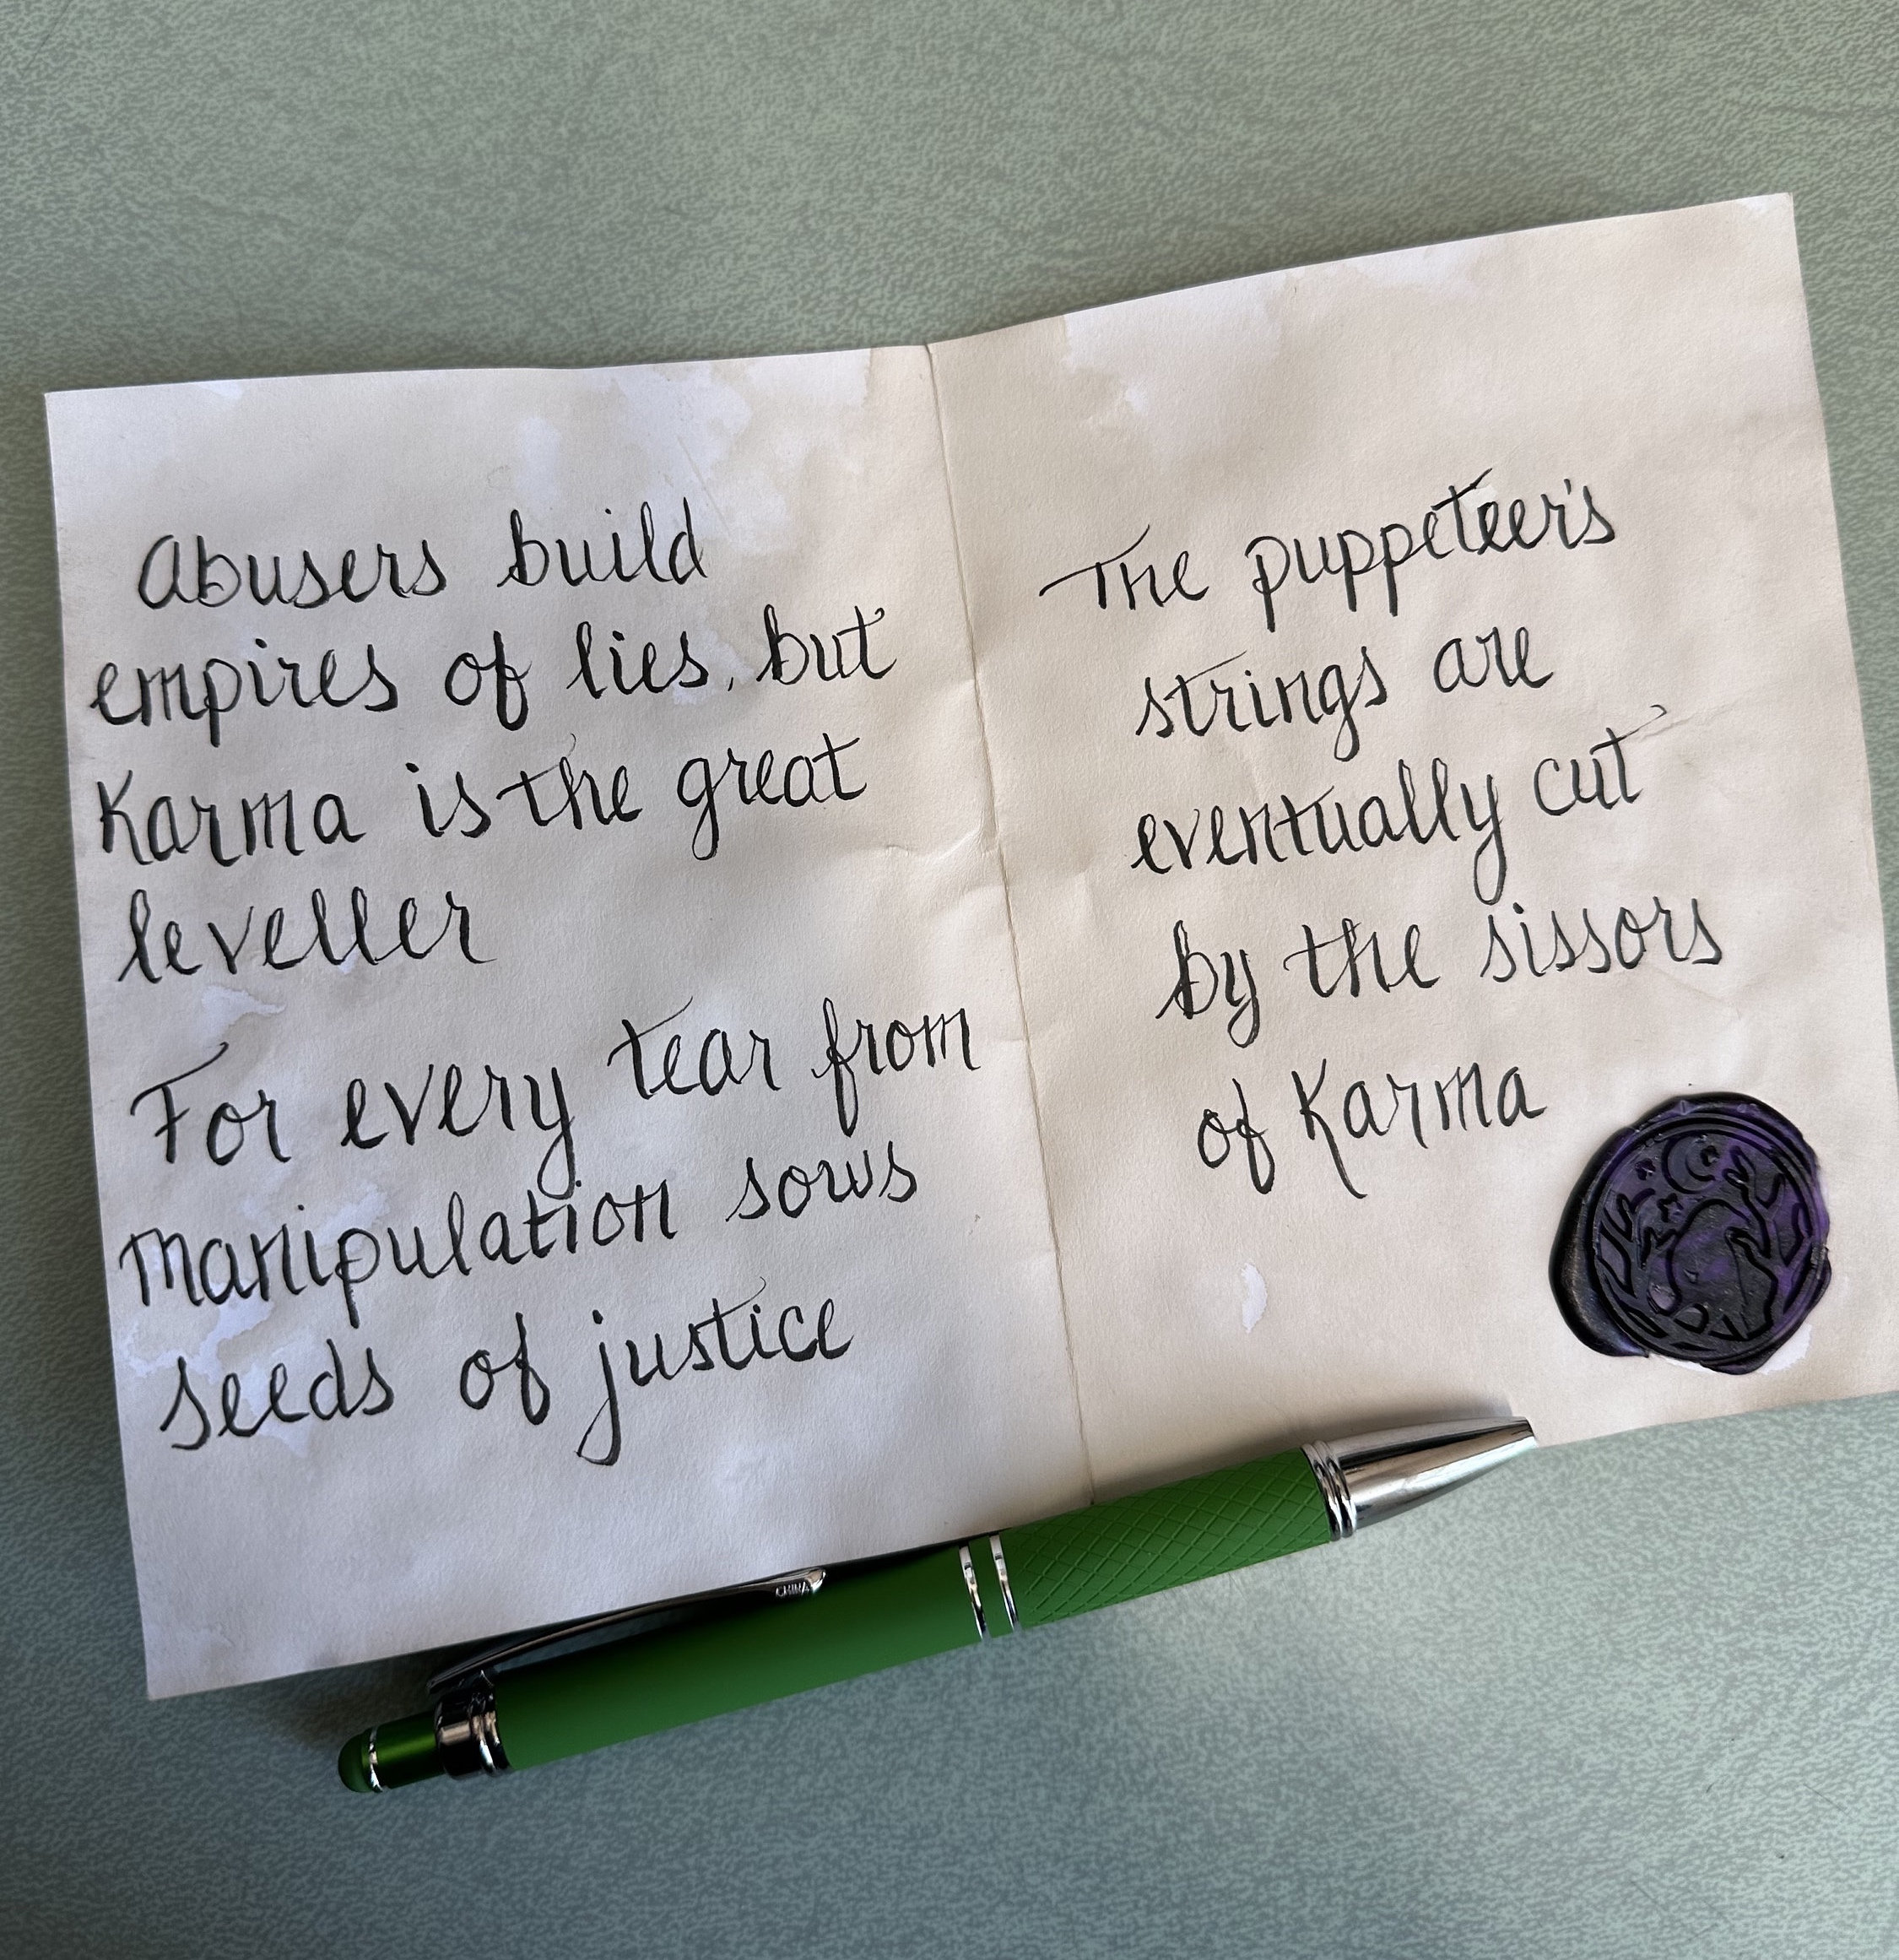 Abusers build
empires of lies, but
Karma is the great
leveller
For every tear from
manipulation sows
seeds of justice
The puppeteer's
strings are
eventually cut
by the sissors
of Karma
CHINA